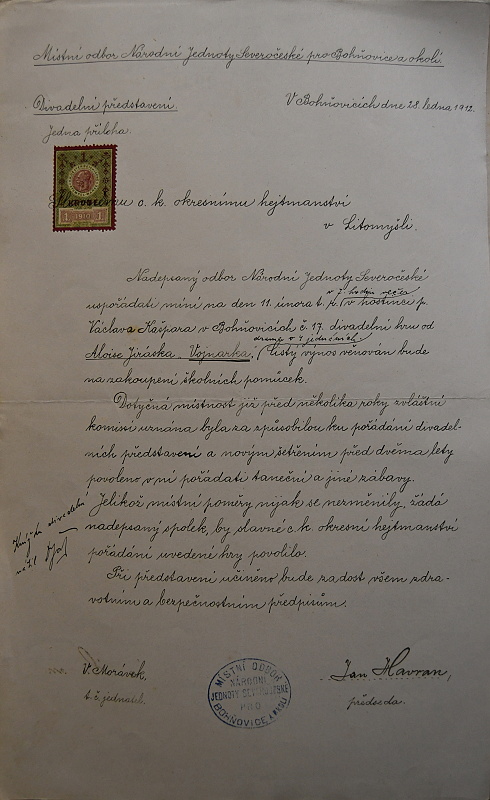 Místní odbor Národní Jednoty Severočeské pro Bohňovice a okolí.
Divadelní představení.
V Bohňovicích dne 28. ledna 1912.
Jedna příloha.
1
1 1
Slavnému c. k. okresnímu hejtmanství
v Litomyšli.
Nadepsaný odbor Národní Jednoty Severočeské
v 7 hodin večer
uspořádati míní na den 11. února t. r. v hostinci p.
Václava Kašpara v Bohňovicích č. 17. divadelní hru od
drama o 4 jednáních.
Aloise Jiráska „Vojnarka“, Čistý výnos věnován bude
na zakoupení školních pomůcek.
Dotyčná místnost již před několika roky zvláštní
komisí uznána byla za způsobilou ku pořádání divadel-
ních představení a novým šetřením před dvěma lety
povoleno v ní pořádati taneční a jiné zábavy.
Jelikož místní poměry nijak se nezměnily, žádá
nadepsaný spolek, by slavné c. k. okresní hejtmanství
pořádání uvedené hry povolilo.
Při představení učiněno bude zadost všem zdra-
votním a bezpečnostním předpisům.
V. Morávek,
t. č. jednatel.
MÍSTNÍ ODBOR
NÁRODNÍ
JEDNOTY SEVEROČESKÉ
PRO
BOHŇOVICE A OKOLÍ
Jan Havran,
předseda.